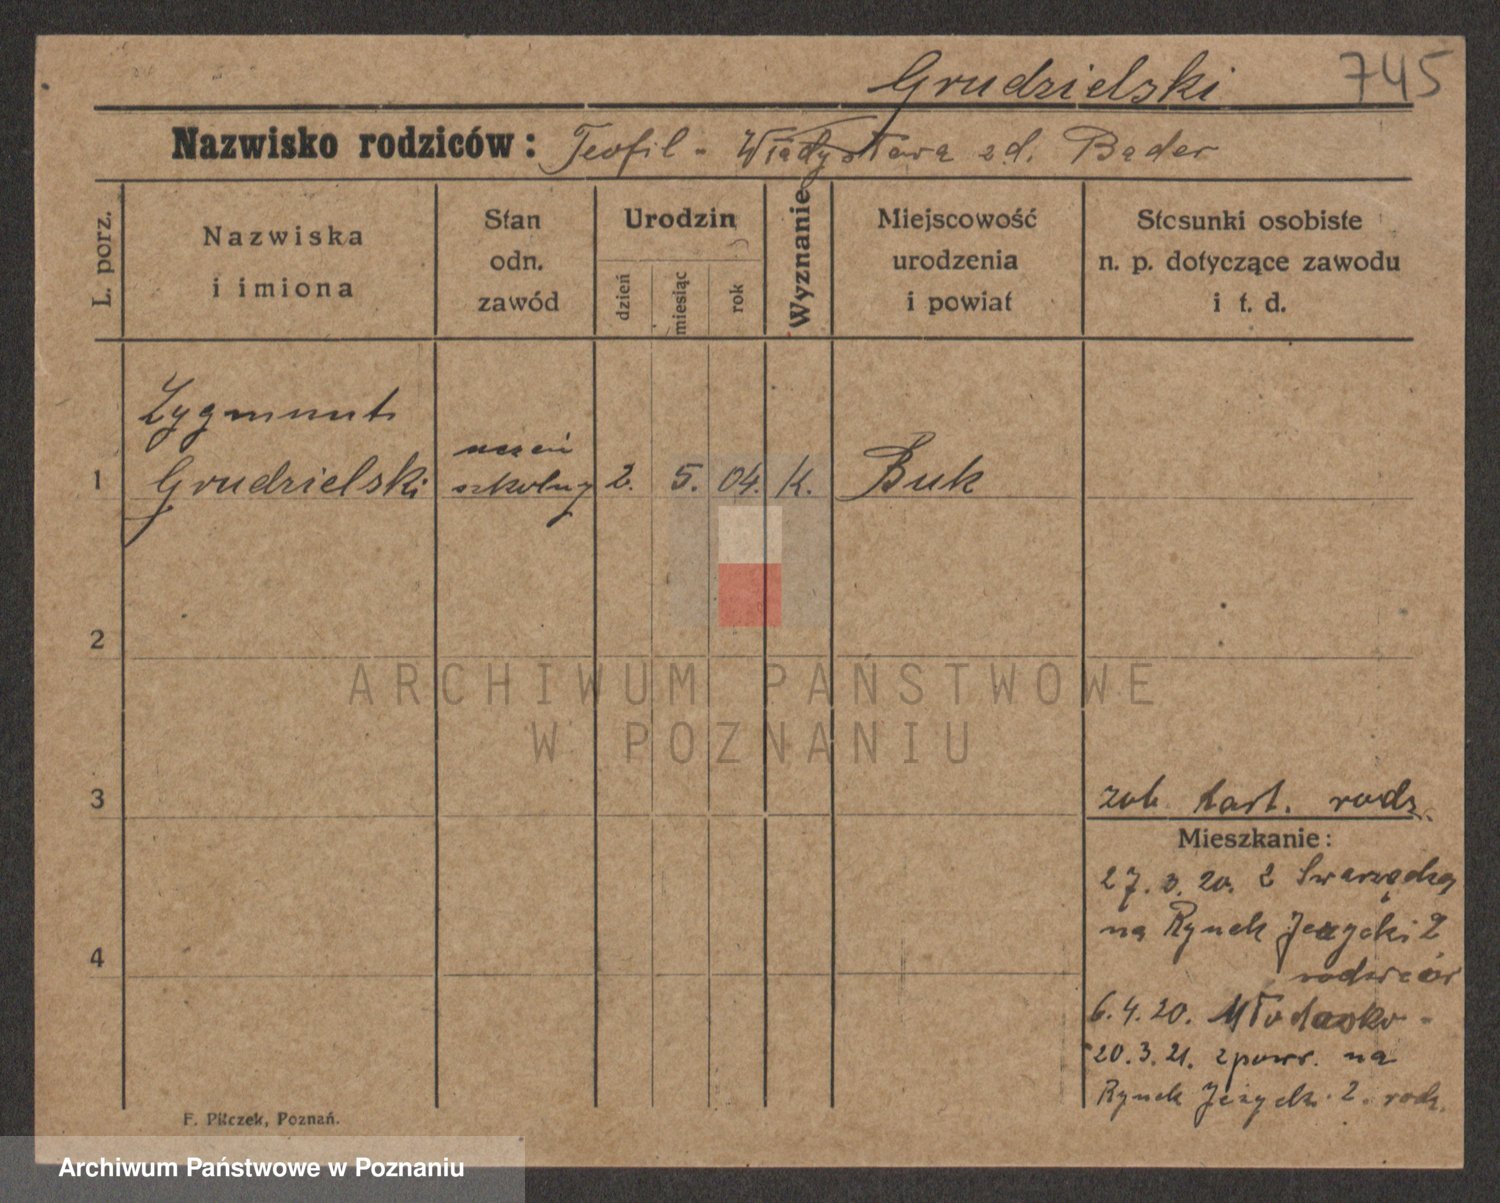 Grudzielski 745
Nazwisko rodziców: Teofil - Władysława zd. Bąder
L. porz.
Nazwiska
i imiona
Stan
odn.
zawód
Urodzin
dzień
miesiąc
rok
Wyznanie
Miejscowość
urodzenia
i powiat
Stosunki osobiste
n. p. dotyczące zawodu
i t. d.
Zygmunt
uczeń
1 Grudzielski szkolny 2. 5. 04. K. Buk
2
ARCHIWUM PAŃSTWOWE
W POZNANIU
3 zob. kart. rodz.
Mieszkanie:
27.3.20. z Swarzędza
na Rynek Jeżycki 2
4 rodziców
6.4.20.
20.3.21. z powr. na
Rynek Jeżycki 2. rodz.
F. Pilczek, Poznań.
Archiwum Państwowe w Poznaniu